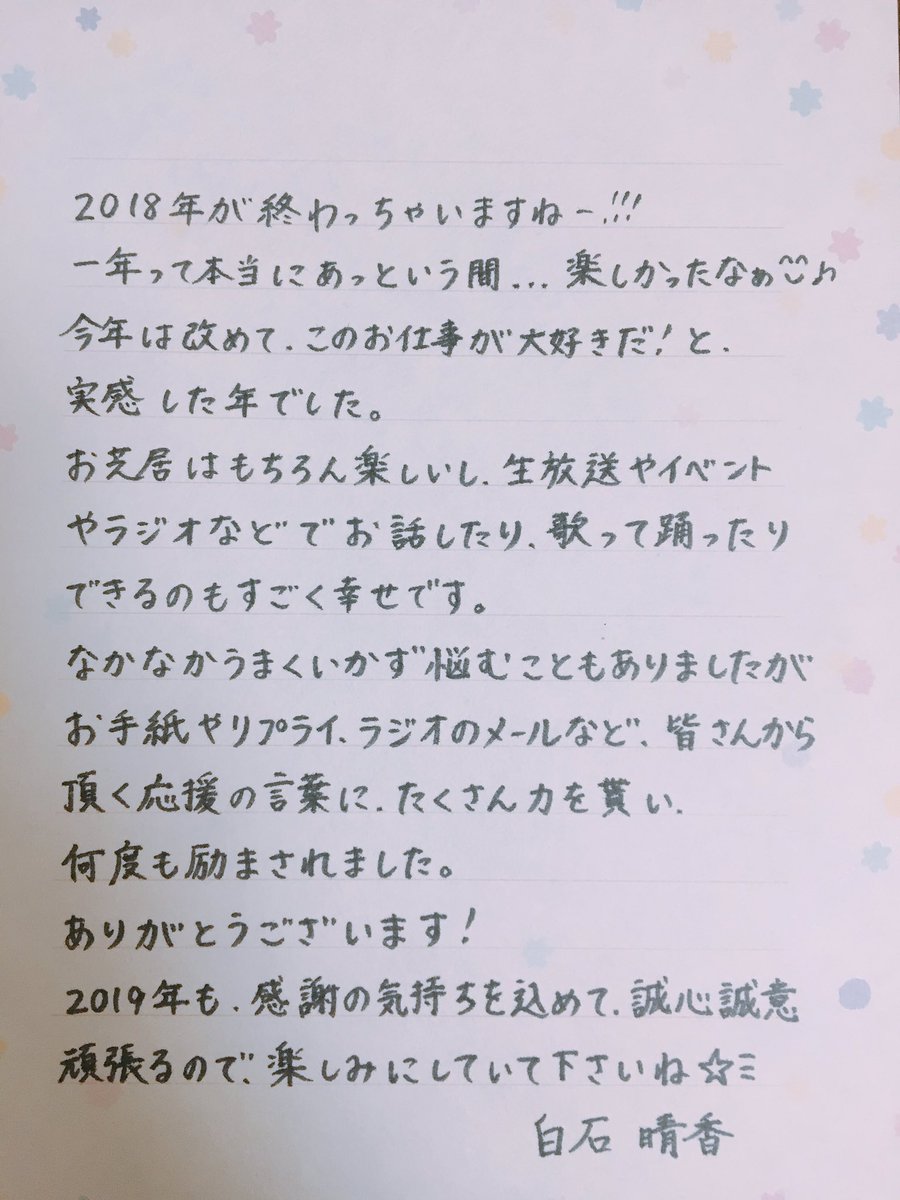 2018年が終わっちゃいますねー!!!
一年って本当にあっという間...楽しかったなぁ♪
今年は改めて、このお仕事が大好きだ!と、
実感した年でした。
お芝居はもちろん楽しいし、生放送やイベント
やラジオなどでお話したり、歌って踊ったり
できるのもすごく幸せです。
なかなかうまくいかず悩むこともありましたが
お手紙やリプライ、ラジオのメールなど、皆さんから
頂く応援の言葉に、たくさん力を貰い、
何度も励まされました。
ありがとうございます!
2019年も、感謝の気持ちを込めて、誠心誠意
頑張るので、楽しみにしていて下さいね☆ミ
白石 晴香